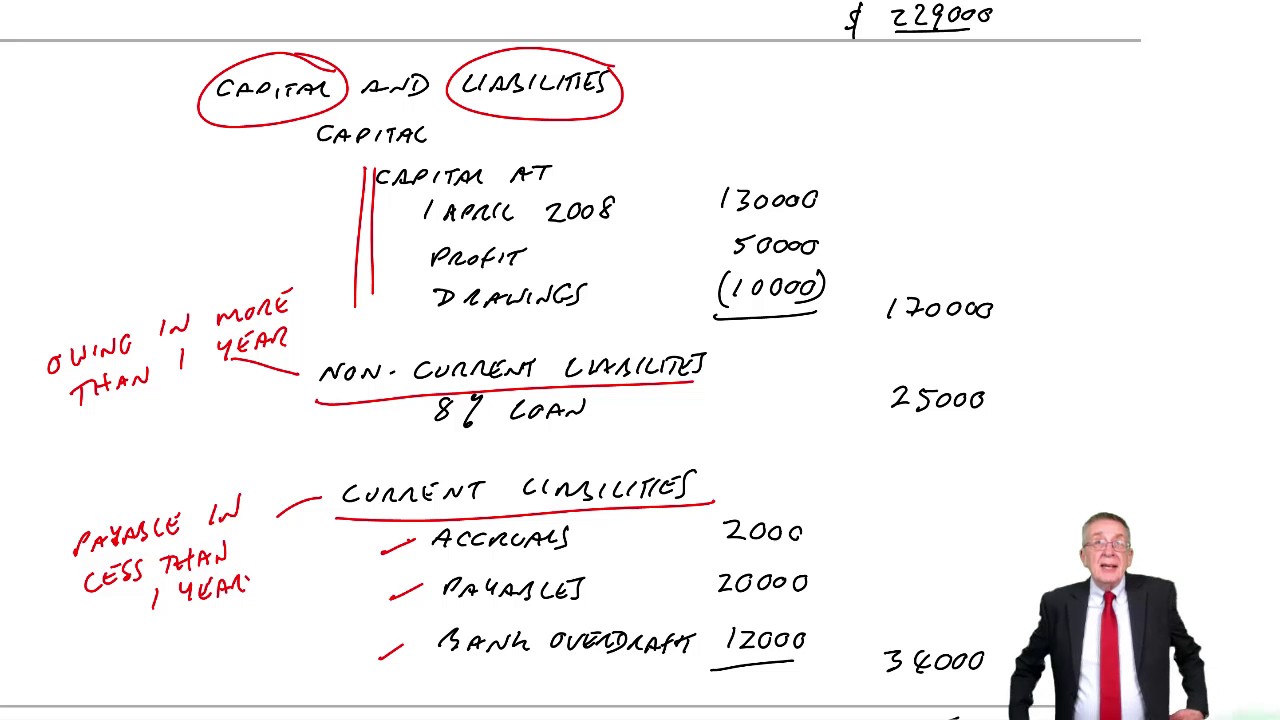 $ 229000
CAPITAL AND LIABILITIES
CAPITAL
CAPITAL AT
1 APRIL 2008 130000
PROFIT 50000
DRAWINGS (10000) 170000
OWING IN MORE
THAN 1 YEAR
NON-CURRENT LIABILITES
8% LOAN 25000
CURRENT LIABILITIES
PAYABLE IN
LESS THAN
1 YEAR.
ACCRUALS 2000
PAYABLES 20000
BANK OVERDRAFT 12000 34000